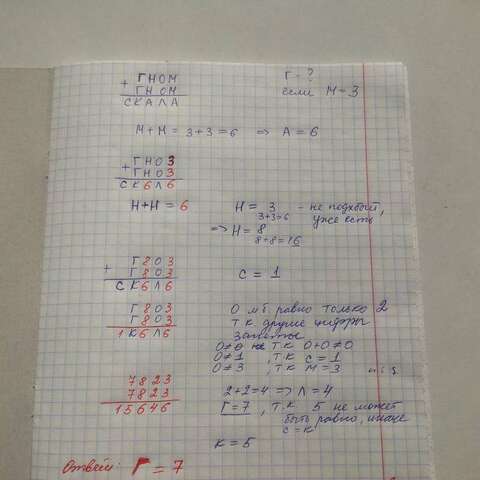 + ГНОМ
ГНОМ
СКАЛА
Г - ?
если М = 3
М + М = 3+3 = 6 => А = 6
+ ГНО3
ГНО3
СК6Л6
Н+Н = 6
Н = 3 - не подходит,
3+3=6 уже есть
=> Н = 8
8+8=16
+ Г8О3
Г8О3
СК6Л6
С = 1
Г8О3
Г8О3
1К6Л6
О мб равно только 2
т.к другие цифры
заняты
О≠0 т.к О+О≠0
О≠1, т.к С=1
О≠3, т.к М=3
и т.д
7823
7823
15646
2+2=4 => Л=4
Г=7, т.к 5 не может
быть равно, иначе
С=К
К = 5
Ответ: Г = 7